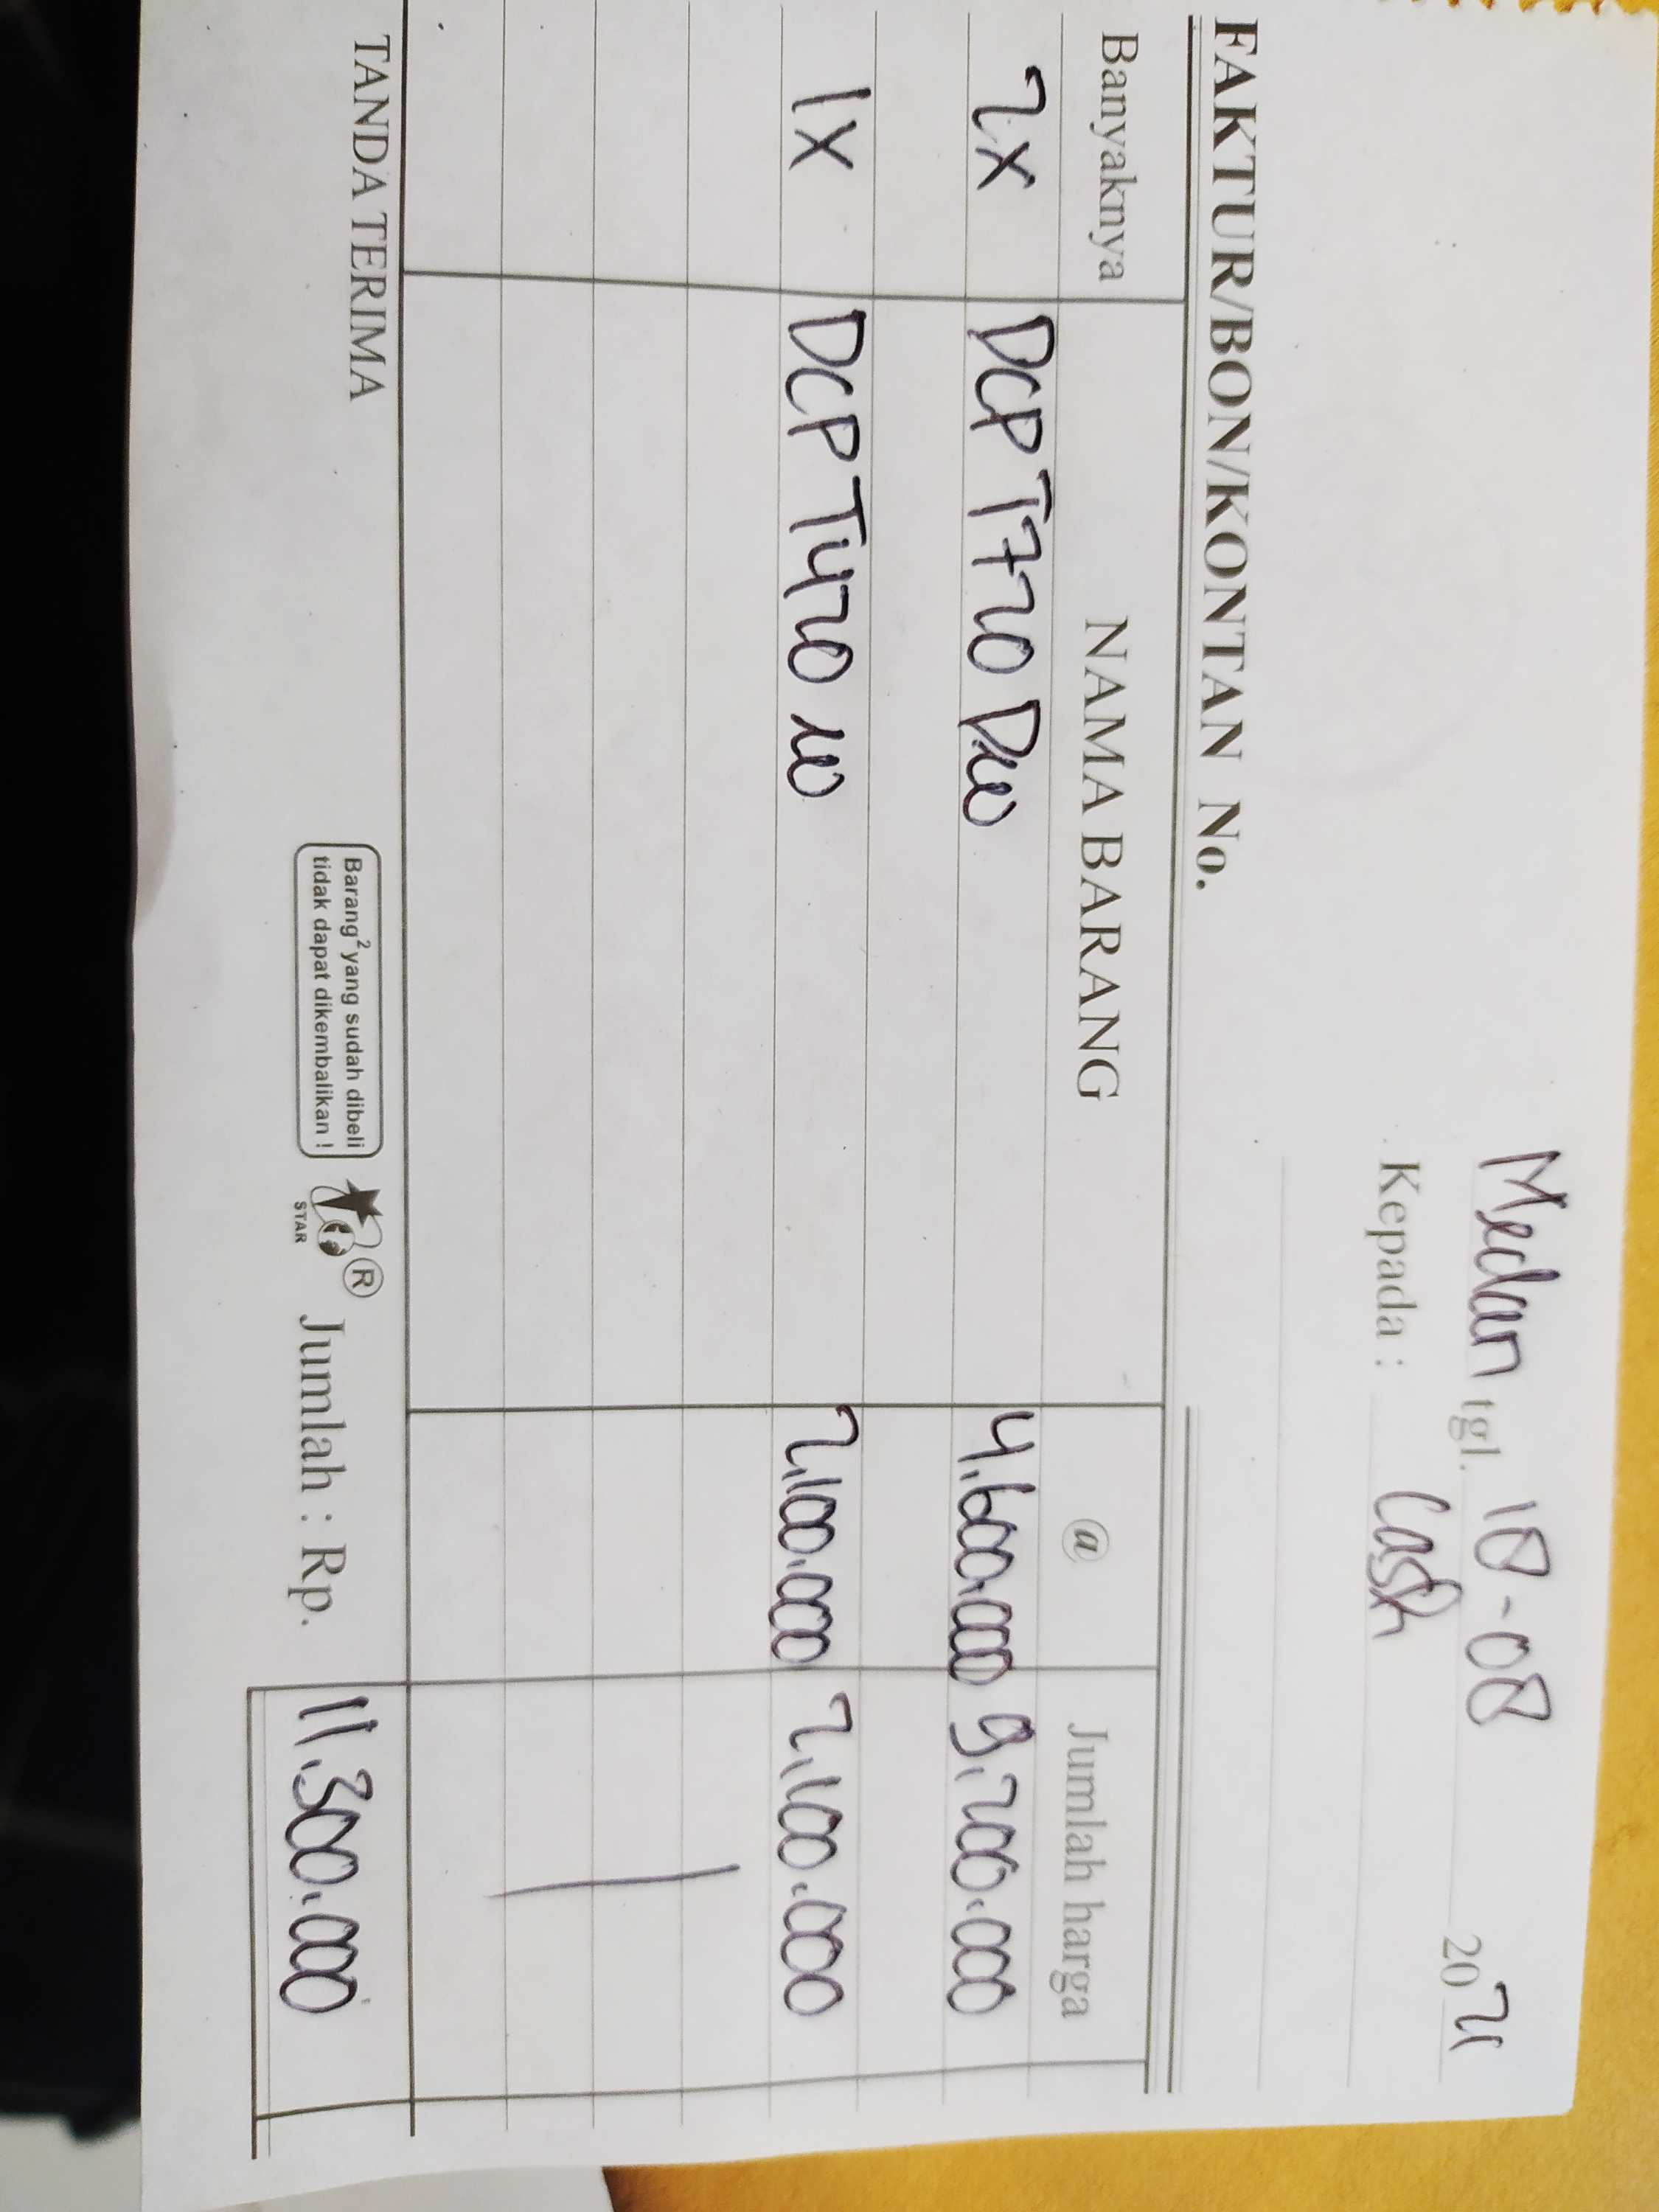 Medan tgl. 18-08 2021
Kepada : Cash
FAKTUR/BON/KONTAN No.
Banyaknya NAMA BARANG @ Jumlah harga
2x DCP T720 DW 4.600.000 9.200.000
1x DCP T420 W 2.100.000 2.100.000
TANDA TERIMA
Barang² yang sudah dibeli
tidak dapat dikembalikan !
STAR ®
Jumlah : Rp. 11.300.000